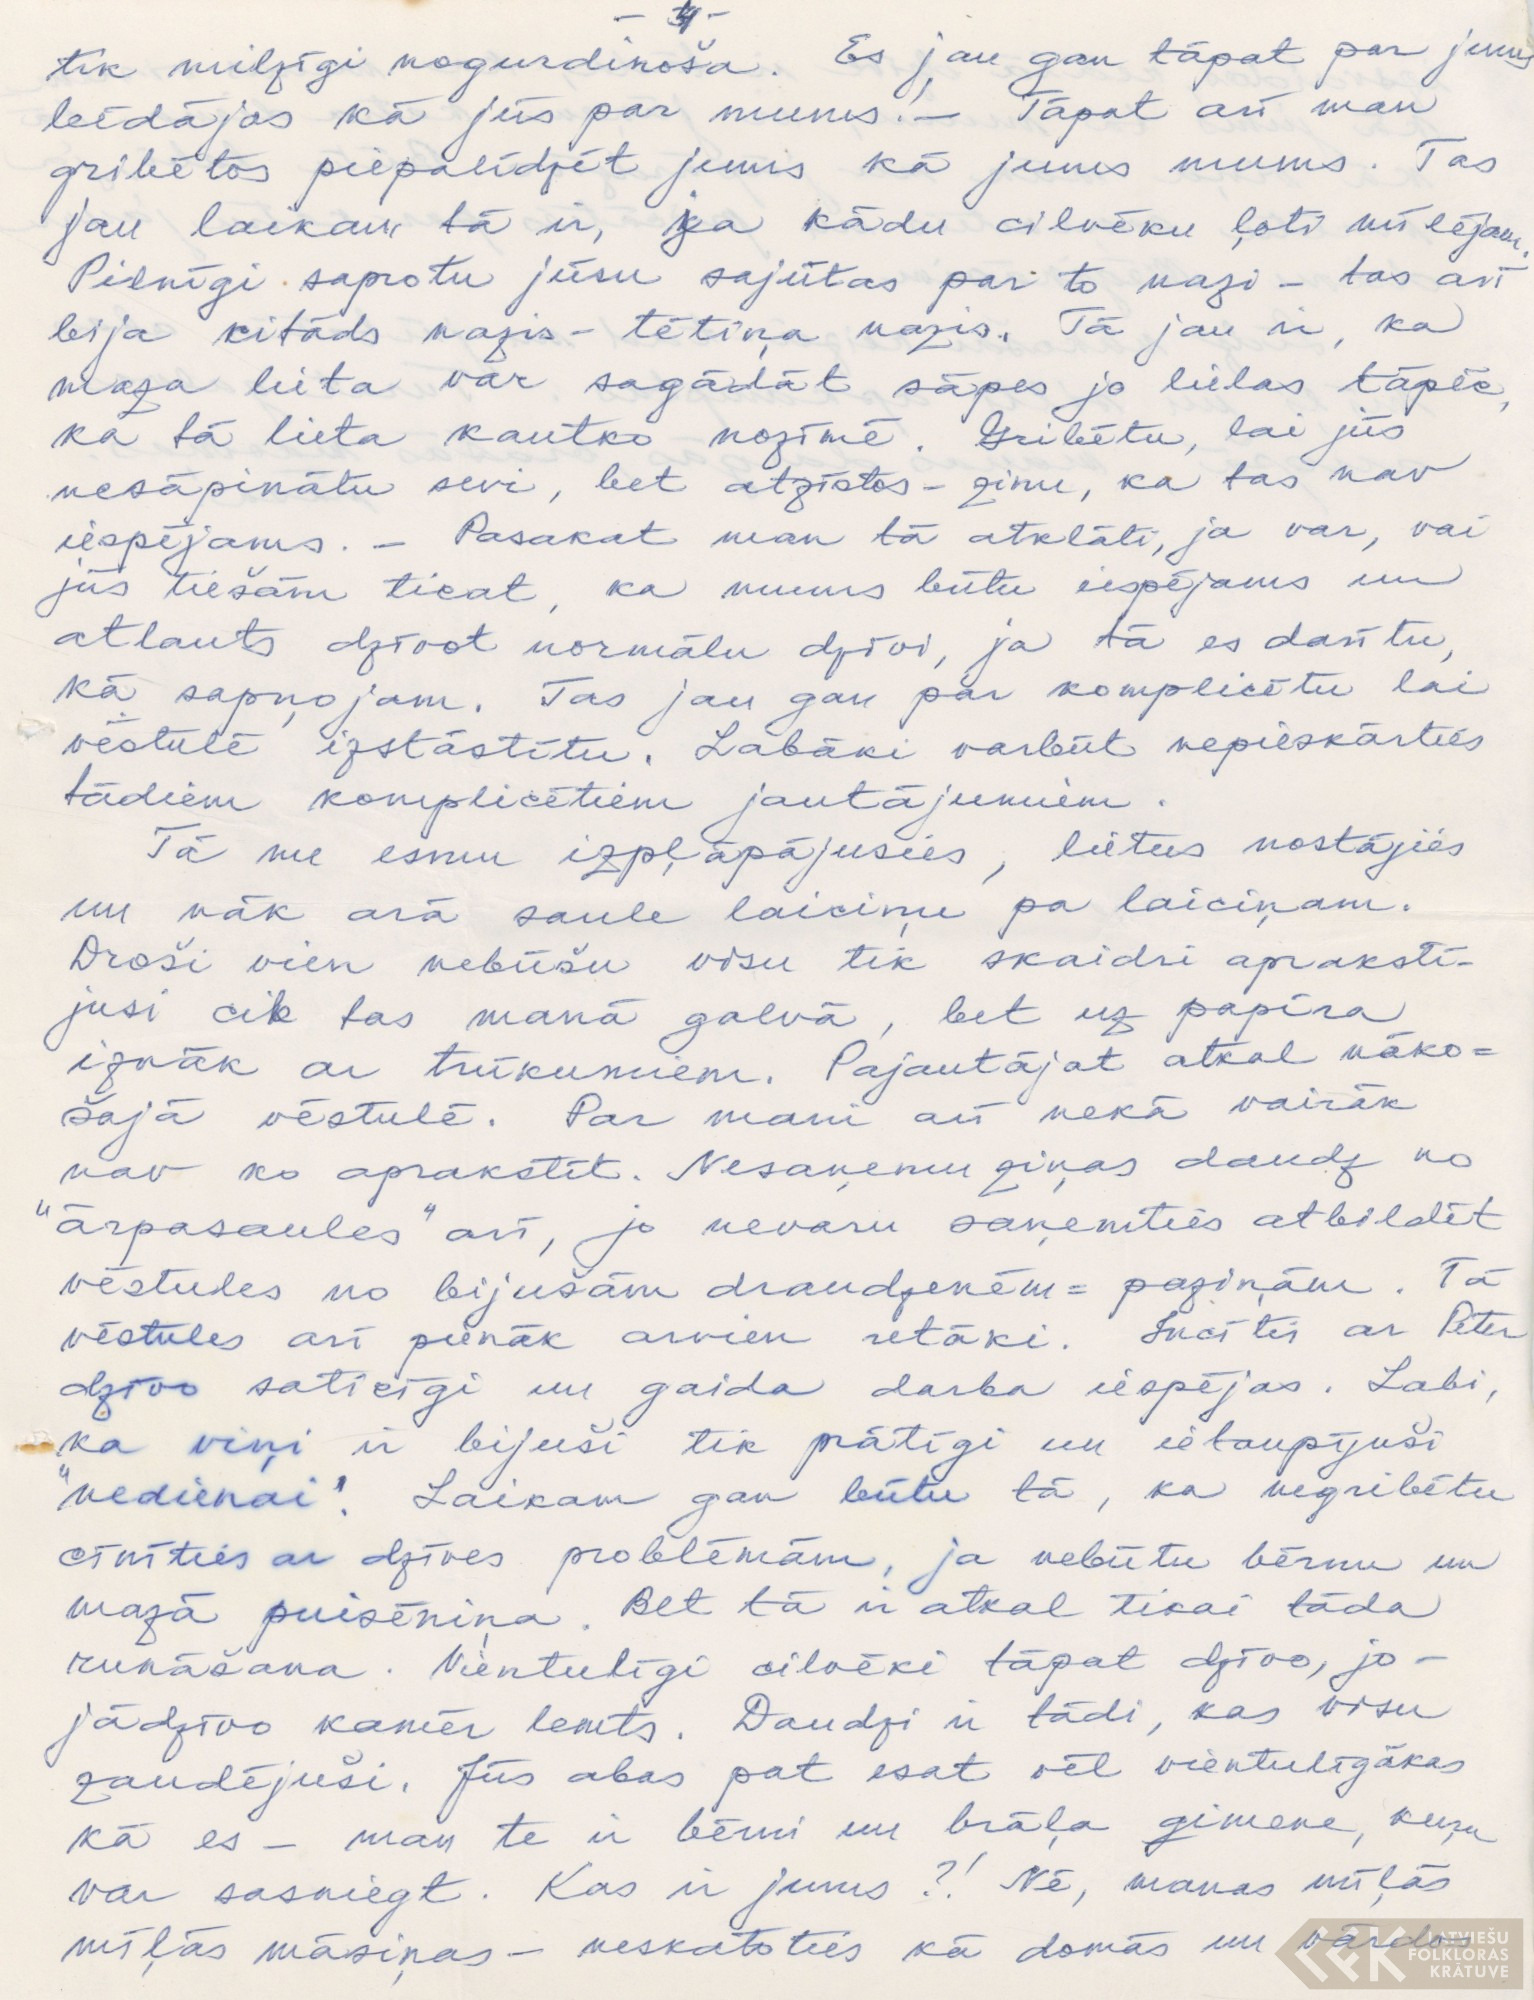 - 4 -
tik milzīgi nogurdinoša. Es jau gan tāpat par jums
bēdājos kā jūs par mums! – Tāpat arī man
gribētos piepalīdzēt jums kā jums mums. Tas
jau laikam tā ir, ja kādu cilvēku ļoti mīlējam.
Pilnīgi saprotu jūsu sajūtas par to nazi – tas arī
bija citāds nazis – tētiņa nazis. Tā jau ir, ka
maza lieta var sagādāt sāpes jo lielas tāpēc,
ka tā lieta kautko nozīmē. Gribētu, lai jūs
nesāpinātu sevi, bet atzīstos – zinu, ka tas nav
iespējams. – Pasakat man tā atklāti, ja var, vai
jūs tiešām ticat, ka mums būtu iespējams un
atlauts dzīvot normālu dzīvi, ja tā es darītu,
kā sapņojam. Tas jau gan par komplicētu lai
vēstulē izstāstītu. Labāki varbūt nepieskārties
tādiem komplicētiem jautājumiem.
Tā nu esmu izpļāpājusies, lietus nostājies
un nāk ārā saule laiciņu pa laiciņam.
Droši vien nebūšu visu tik skaidri aprakstī-
jusi cik tas manā galvā, bet uz papīra
iznāk ar trūkumiem. Pajautājat atkal nāko=
šajā vēstulē. Par mani arī nekā vairāk
nav ko aprakstīt. Nesaņemu ziņas daudz no
"ārpasaules" arī, jo nevaru saņemties atbildēt
vēstules no bijušām draudzenēm = paziņām. Tā
vēstules arī pienāk arvien retāki. Incītis ar Pēter
dzīvo saticīgi un gaida darba iespējas. Labi,
ka viņi ir bijuši tik prātīgi un ietaupījuši
"nedienai". Laikam gan būtu tā, ka negribētu
cīnīties ar dzīves problēmām, ja nebūtu bērnu un
mazā puisēniņa. Bet tā ir atkal tikai tāda
runāšana. Vientulīgi cilvēki tāpat dzīvo, jo –
jādzīvo kamēr lemts. Daudzi ir tādi, kas visu
zaudējuši. Jūs abas pat esat vēl vientulīgākas
kā es – man te ir bērni un brāļa ģimene, kuru
var sasniegt. Kas ir jums?! Nē, manas mīļās
mīļās māsiņas – neskatoties kā domās un vārdos
LATVIEŠU
FOLKLORAS
KRĀTUVE